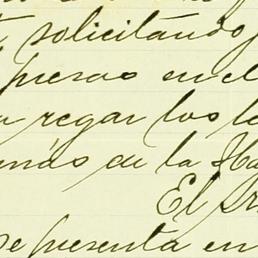 solicitando
pesos en el
regar los
más de la Ha
El
se presenta en